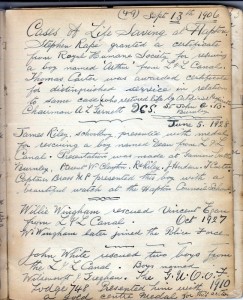 (49) Sept 13th 1906
Cases of Life Saving at Hapton
Stephen Rake granted a certificate
from Royal Humane Society for rescuing
a boy named Slater from L & L Canal.
Thomas Carter was awarded certificate
for distinguished service in relation
to same case, who retired life by
Chairman A. L. 965.
June 5. 1926
James Riley, schoolboy, presented with medal
for rescuing a boy named Dean from L & L
Canal. Presentation was made at
Burnley,
Captain Brass M.P presented this boy with a
beautiful watch at the Hapton Council School
Willie Wingham rescued Vincent Egan
from L & L Canal. Oct 1927
W. Wingham later joined the Police Force.
John White rescued two boys from
The L & L Canal. Boys named
Walmsley & Gregson. The I.U.O.F.
Lodge 748 Presented him with
a gold centre Medal for this
1910